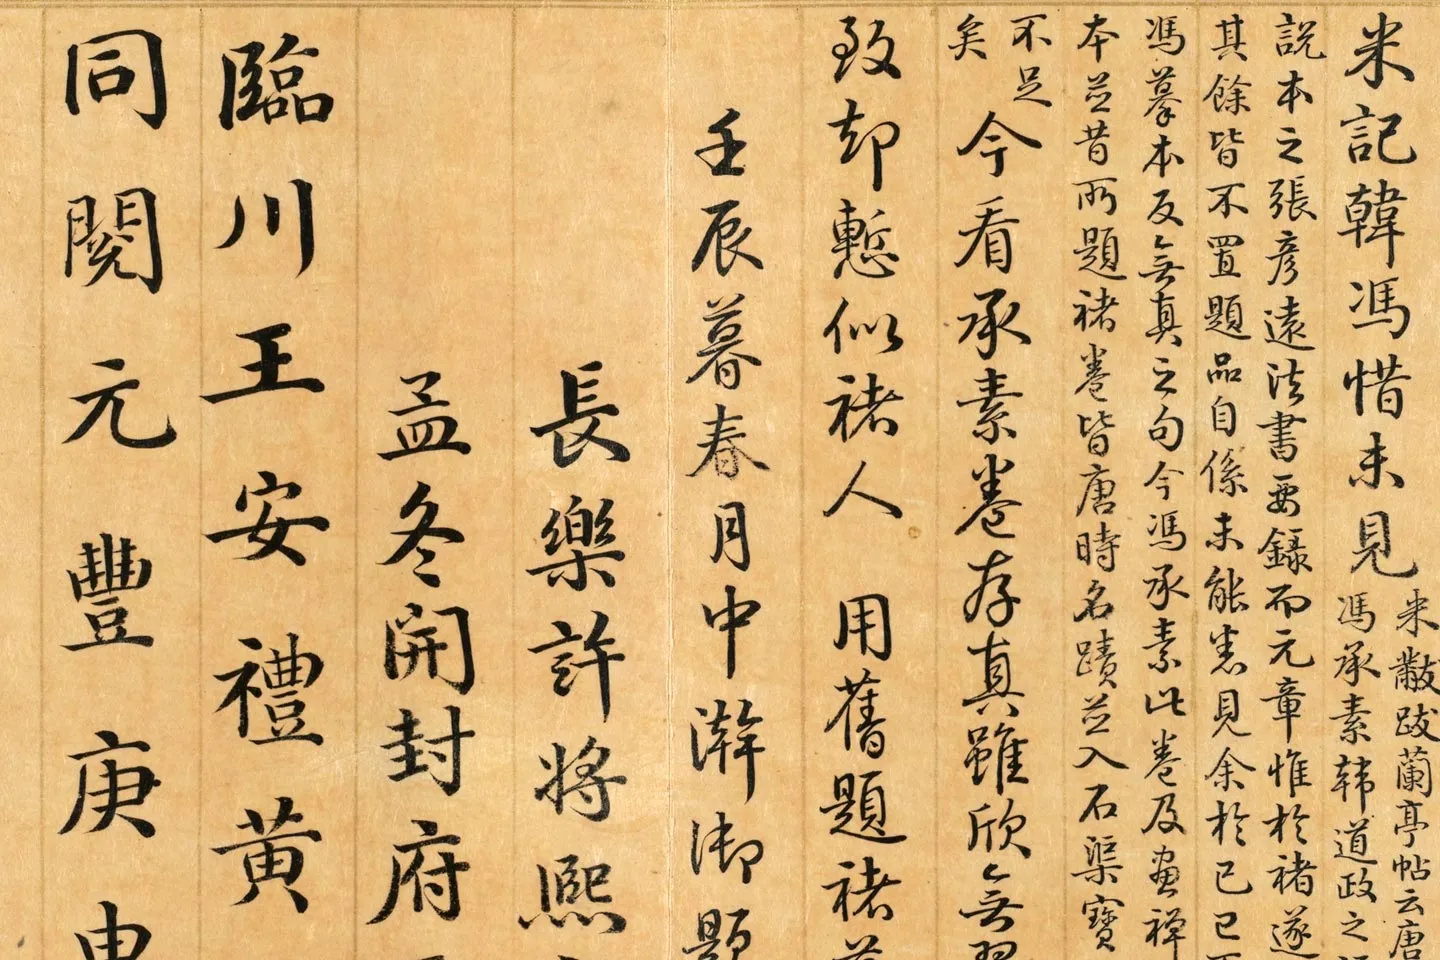 米記韓馮惜未見
米黻跋蘭亭帖云唐
馮承素韩道政之
說本之張彦遠法書要錄而元章惟於褚遂
其餘皆不置題品自係未能悉見余於己巳
馮摹本反無真之句今馮承素此卷及畫禅
本並昔所題褚卷皆唐時名蹟並入石渠寶
不足
矣
今看承素卷存真雖欣無
致却慙似褚人 用舊題褚
壬辰暮春月中澣御題
長樂許將熙
孟冬開封府
臨川王安禮黄
同閱元豐庚申